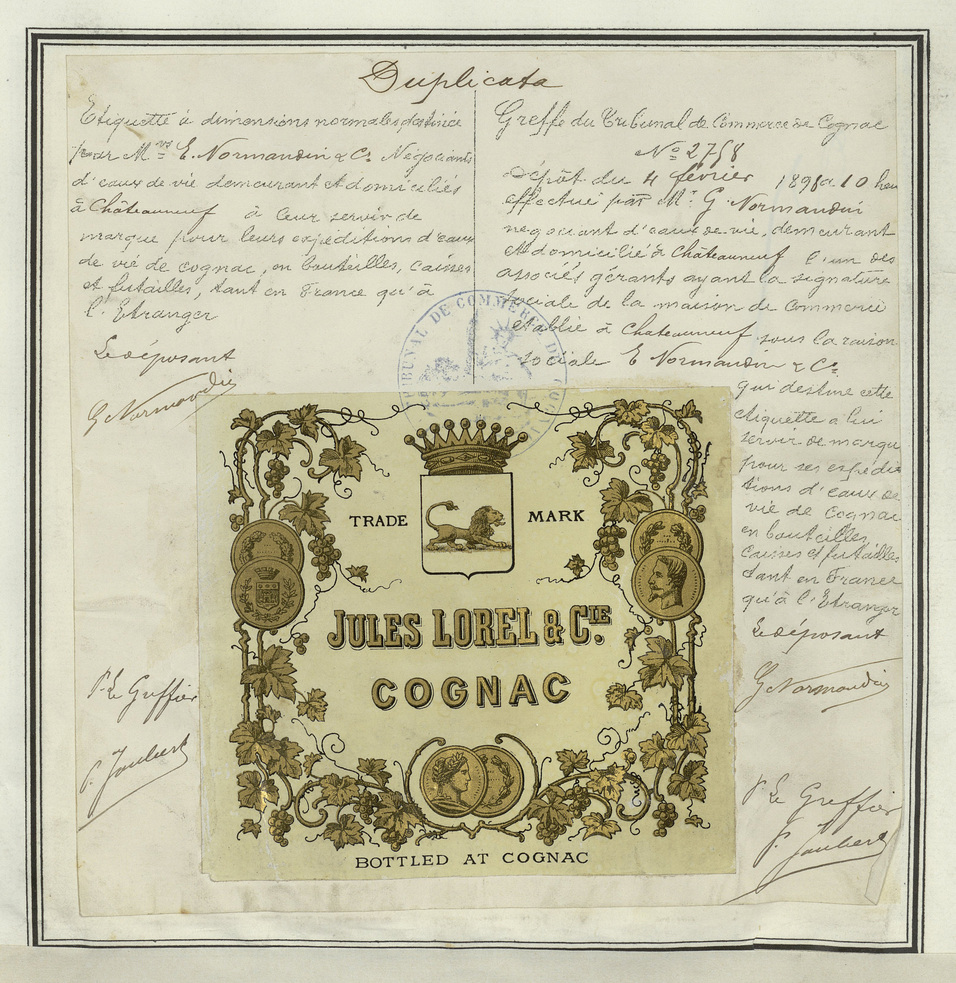 Duplicata
Etiquette à dimensions normales destinée
par Mrs E. Normandin & Co Négociants
d'eaux de vie demeurant et domiciliés
à Châteauneuf à leur servir de
marque pour leurs expéditions d'eaux
de vie de cognac, en bouteilles, caisses
et futailles, tant en France qu'à
l'Etranger
Le déposant
G Normandin
P. Le Greffier
P. Joubert
Greffe du Tribunal de Commerce de Cognac
No 2758
Dépôt du 4 février 1898 a 10 heu
effectué par Mr G Normandin
négociant d'eaux-de-vie, demeurant
et domicilié à Châteauneuf l'un des
associés gérants ayant la signature
sociale de la maison de commerce
établie à Chateauneuf sous la raison
sociale E Normandin & Co
qui destine cette
étiquette a lui
servir de marque
pour ses expédi
tions d'eaux de
vie de cognac
en bouteilles,
caisses et futailles
tant en France
qu'à l'Etranger
Le déposant
G Normandin
P Le Greffier
P. Joubert
TRIBUNAL DE COMMERCE DE
TRADE MARK
JULES LOREL & CIE.
COGNAC
BOTTLED AT COGNAC